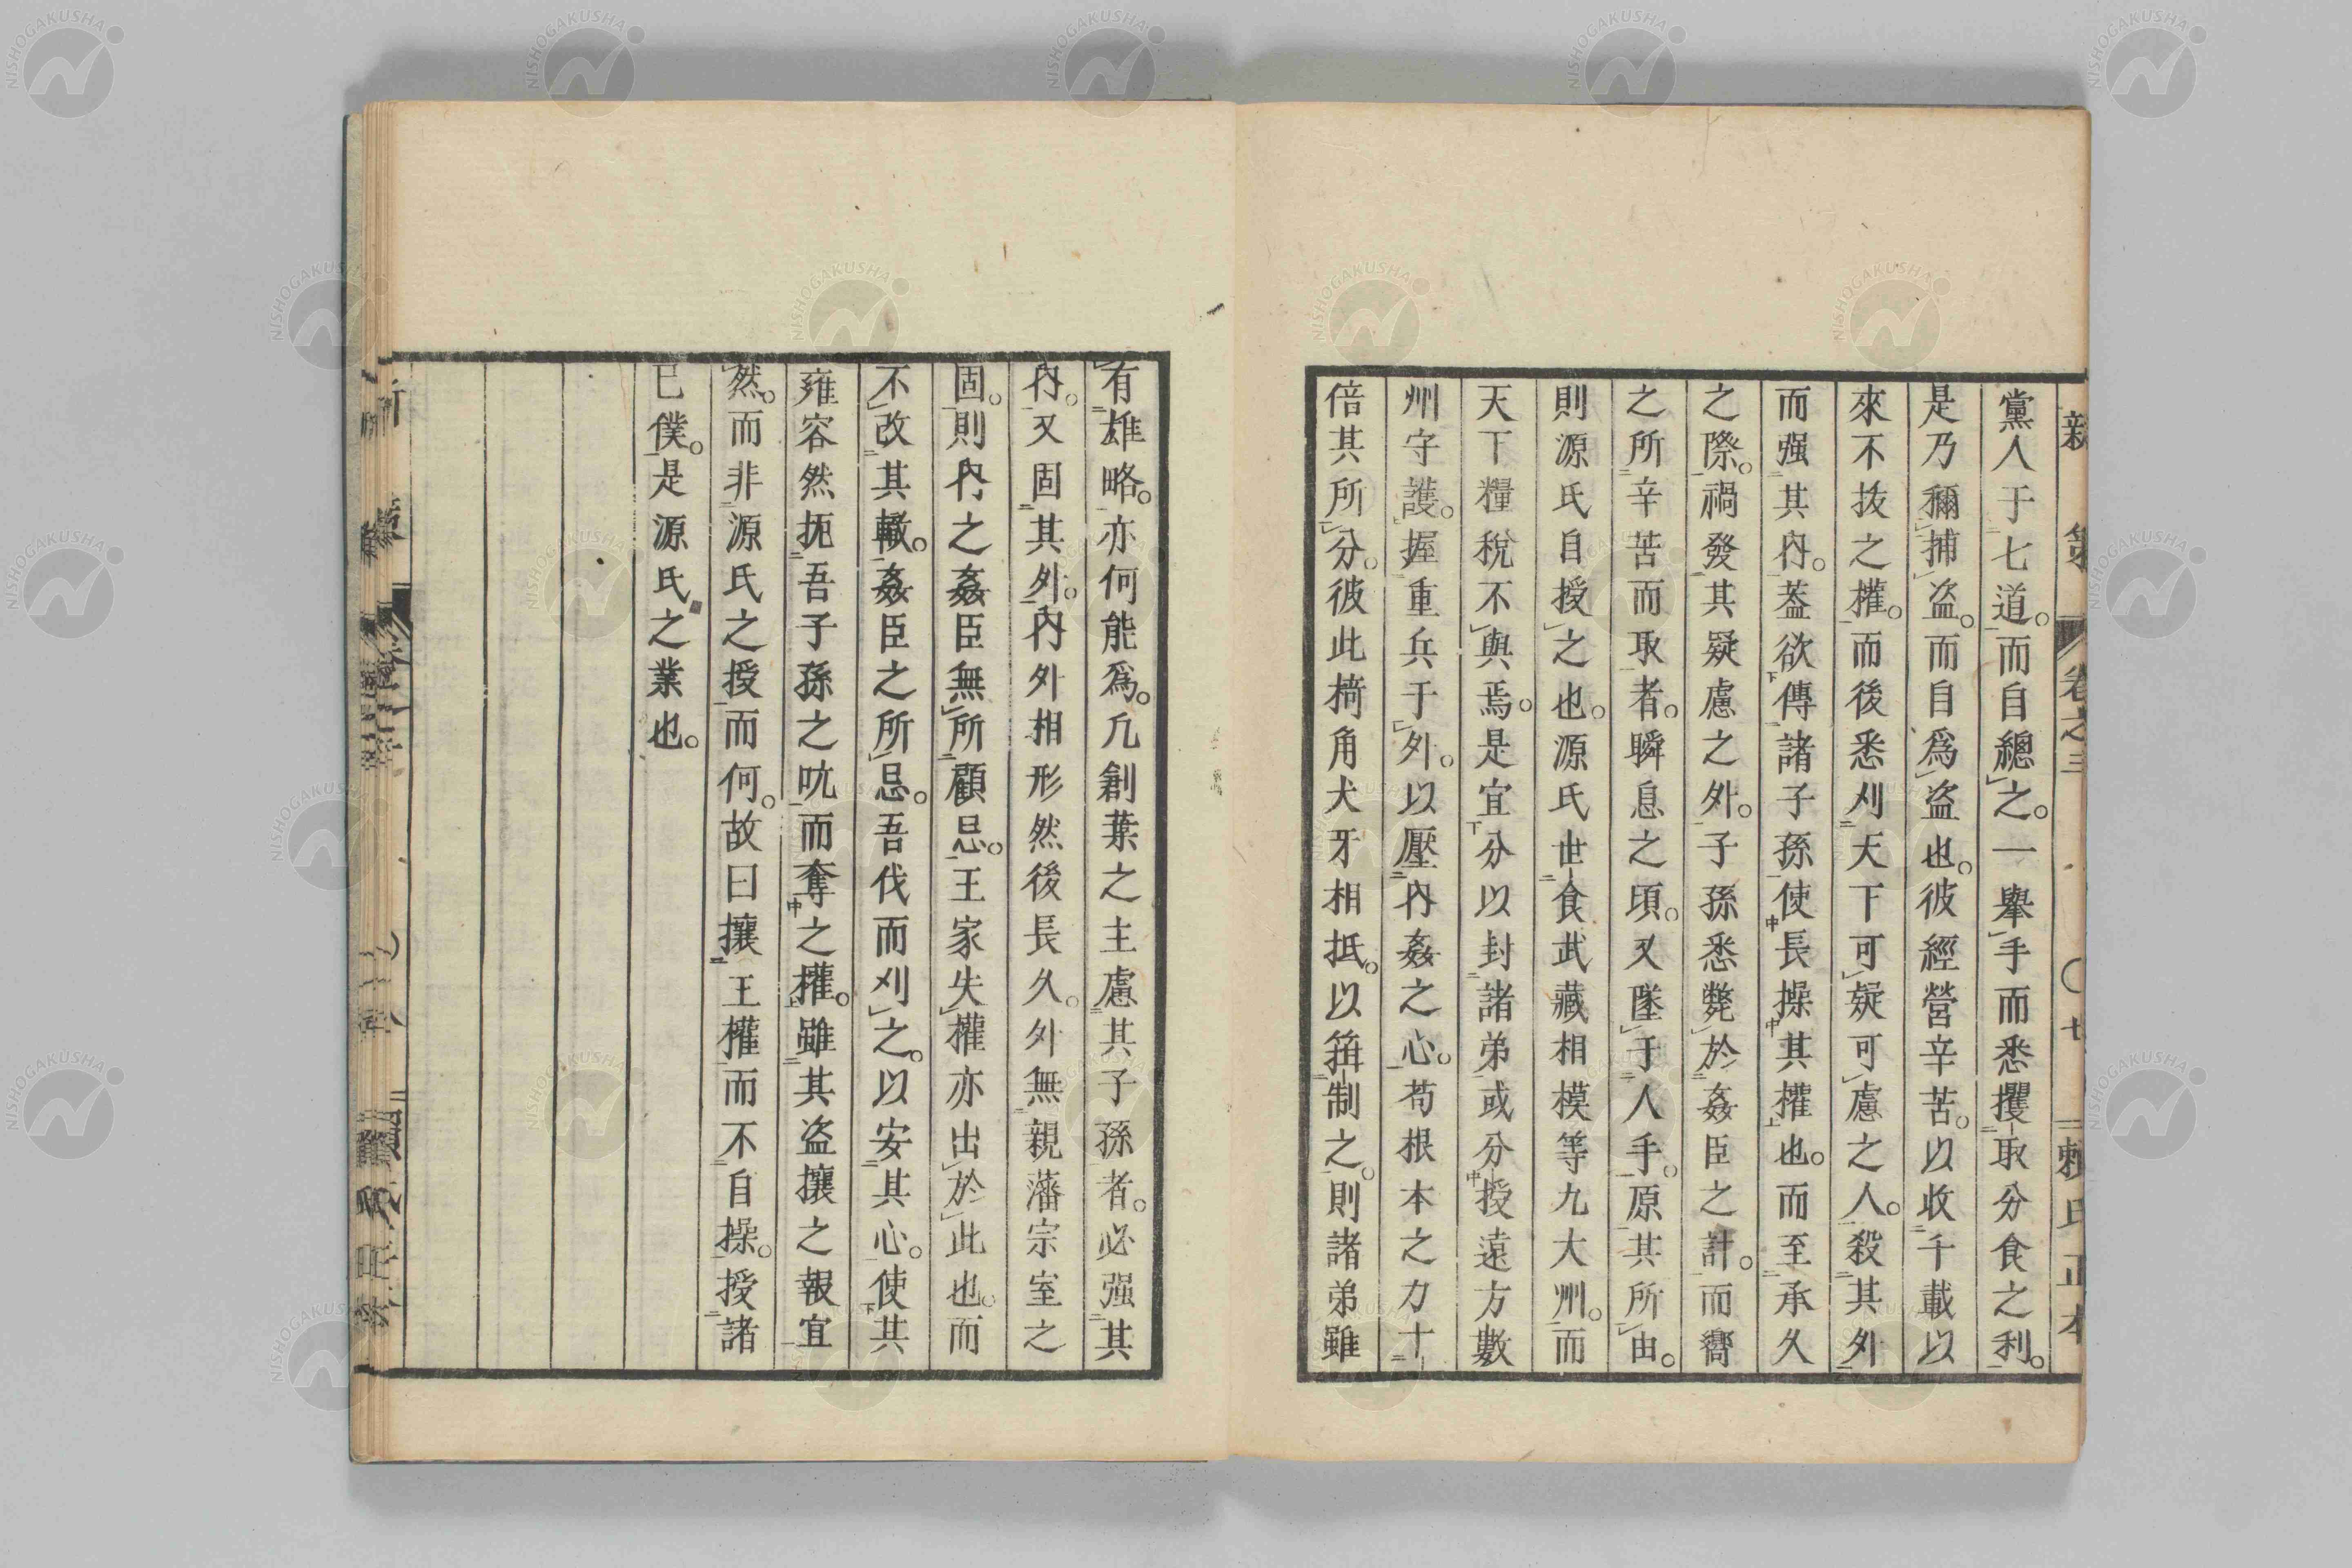 新策 卷之三 〇七 賴氏正本
黨人于七道。而自總之。一舉手而悉攫取分食之利。
是乃獮捕盗。而自爲盗也。彼經營辛苦。以收千載以
來不拔之權。而後悉刈天下可疑可慮之人。殺其外
而强其內。葢欲傳諸子孫使長操其權也。而至承久
之際。禍發其疑慮之外。子孫悉斃於姦臣之計。而嚮
之所辛苦而取者。瞬息之頃。又墜于人手。原其所由。
則源氏自授之也。源氏世食武藏相模等九大州。而
天下糧稅不與焉。是宜分以封諸弟。或分授遠方數
州守護。握重兵于外。以壓內姦之心。苟根本之力十
倍其所分。彼此掎角犬牙相抵。以箝制之。則諸弟雖
有雄略。亦何能爲。凢創業之主慮其子孫者。必强其
內。又固其外。內外相形然後長久。外無親藩宗室之
固。則內之姦臣無所顧忌。王家失權亦出於此也。而
不改其轍。姦臣之所忌。吾伐而刈之。以安其心。使其
雍容然扼吾子孫之吭而奪之權。雖其盗攘之報宜
然。而非源氏之授而何。故曰攘王權而不自操。授諸
已僕。是源氏之業也。